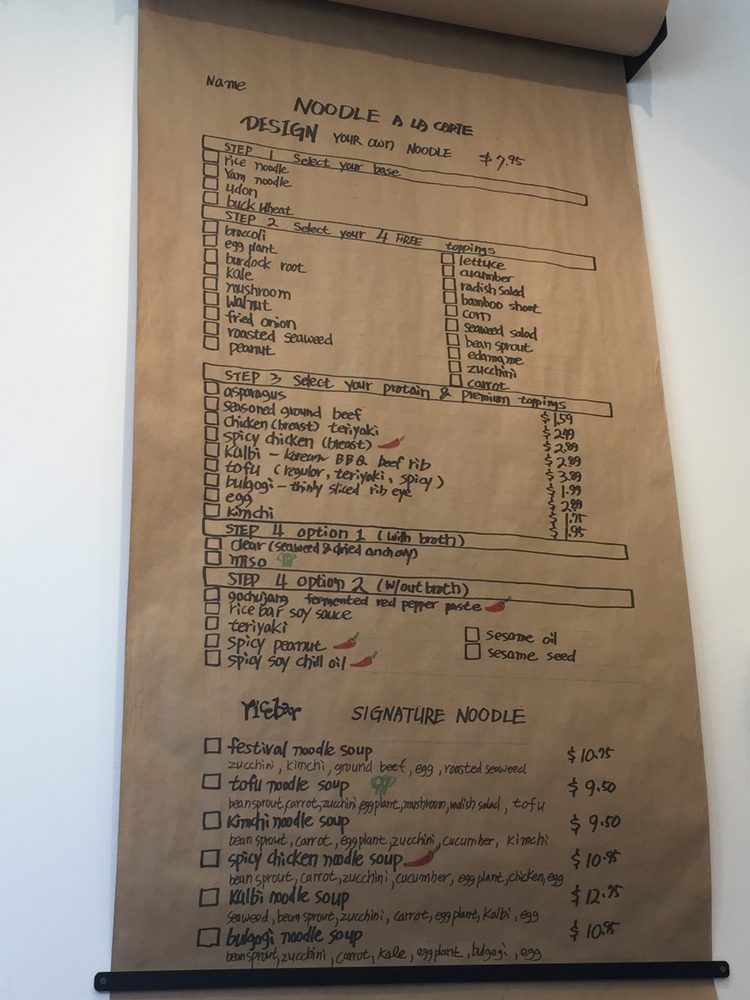 Name
NOODLE A LA CARTE
DESIGN YOUR OWN NOODLE $7.95
STEP 1 Select your base
rice noodle
Yam noodle
udon
buck wheat
STEP 2 Select your 4 FREE toppings
broccoli
egg plant
burdock root
kale
mushroom
walnut
fried onion
roasted seaweed
peanut
lettuce
cucumber
radish salad
bamboo shoot
corn
seaweed salad
bean sprout
edamame
zucchini
carrot
STEP 3 Select your protain & premium toppings
asparagus $1.59
seasoned ground beef $2.49
Chicken (breast) teriyaki $2.89
spicy chicken (breast) $2.89
Kalbi - korean BBQ beef rib $3.89
tofu (regular, teriyaki, spicy) $1.99
bulgogi - thinly sliced rib eye $2.89
egg $1.75
kimchi $.95
STEP 4 option 1 (with broth)
clear (seaweed & dried anchovy)
miso
STEP 4 option 2 (w/out broth)
gochujang fermented red pepper paste
rice bar soy sauce
teriyaki
spicy peanut
spicy soy chili oil
sesame oil
sesame seed
ricebar SIGNATURE NOODLE
festival noodle soup $10.75
zucchini, kimchi, ground beef, egg, roasted seaweed
tofu noodle soup $9.50
bean sprout, carrot, zucchini, eggplant, mushroom, radish salad, tofu
Kimchi noodle soup $9.50
bean sprout, carrot, eggplant, zucchini, cucumber, kimchi
spicy chicken noodle soup $10.95
bean sprout, carrot, zucchini, cucumber, egg plant, chicken, egg
Kalbi noodle soup $12.75
seaweed, bean sprout, zucchini, carrot, egg plant, Kalbi, egg
bulgogi noodle soup $10.95
bean sprout, zucchini, carrot, kale, egg plant, bulgogi, egg